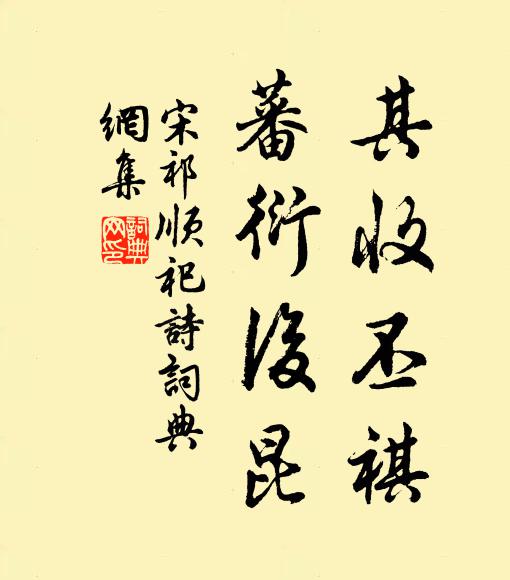 其收丕祺
蕃衍後昆
宋祁順祀詩詞典
網集
詞典网印